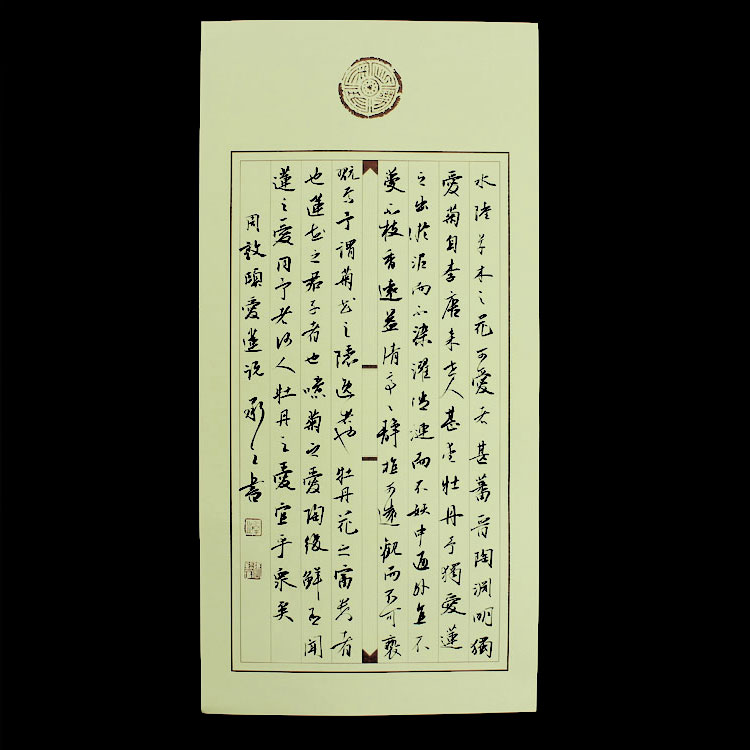 水陸草木之花可愛者甚蕃晉陶淵明獨
愛菊自李唐来世人甚愛牡丹予獨愛蓮
之出淤泥而不染濯清漣而不妖中通外直不
蔓不枝香遠益清亭〻静植可遠觀而不可褻
翫焉予謂菊花之隱逸者也牡丹花之富貴者
也蓮花之君子者也噫菊之愛陶後鮮有聞
蓮之愛同予者何人牡丹之愛宜乎衆矣
周敦頤愛蓮説 之書